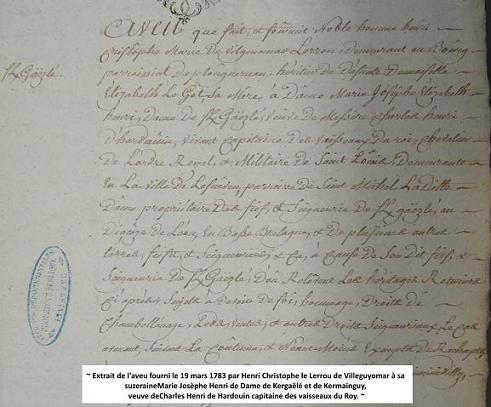 Aveu que fait, et fournit Noble homme henri
christophe Marie de vilguiomar Lerrou, demeurant au Bourg
parroissial de plouguerneau, héritier de défunte Damoiselle
Elizabeth Le Got, Sa Mere, à Dame Marie Josephe Elizabeth
henri, Dame de veuve de Messire charles henri
d'hardoüin, vivant Capitaine des Vaisseaux du roi, chevalier
de Lordre Royal, & Militaire de Saint Loüis, Demeurante
en La ville de Lesneven, parroisse de Saint Michel, Laditte
Dame propriétaire des fief, et Seigneurie de en
de Leon, en Basse Bretagne, et de plusieurs autres
terres, fiefs, et Seigneuries, & Ca, à Cause de Son dit fief, et
Seigneurie de Les héritages Roturiers
Ci après, Sujets à devoir de foi, hommage, Droits de
Chambellenage, Lods, Ventes, et autres Droits Seigneuriaux Le Cas
Suivant La Coutume, et
~ Extrait de l'aveu fourni le 19 mars 1783 par Henri Christophe le Lerrou de Villeguyomar à sa
suzeraineMarie Josèphe Henri de Dame de Kergaëlé et de Kermainguy,
veuve deCharles Henri de Hardouin capitaine des vaisseaux du Roy. ~